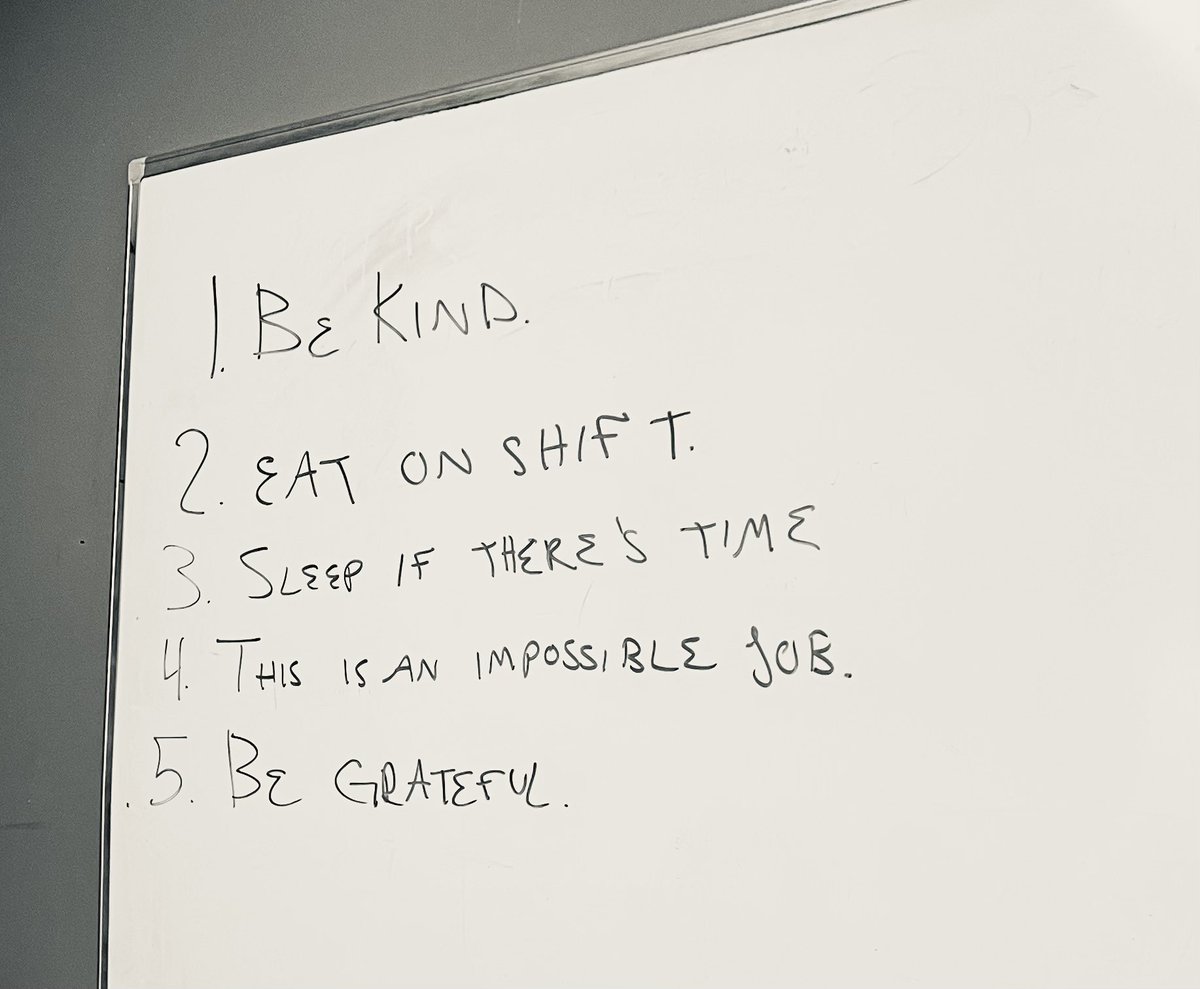 1. BE KIND.
2. EAT ON SHIFT.
3. SLEEP IF THERE'S TIME
4. THIS IS AN IMPOSSIBLE JOB.
5. BE GRATEFUL.